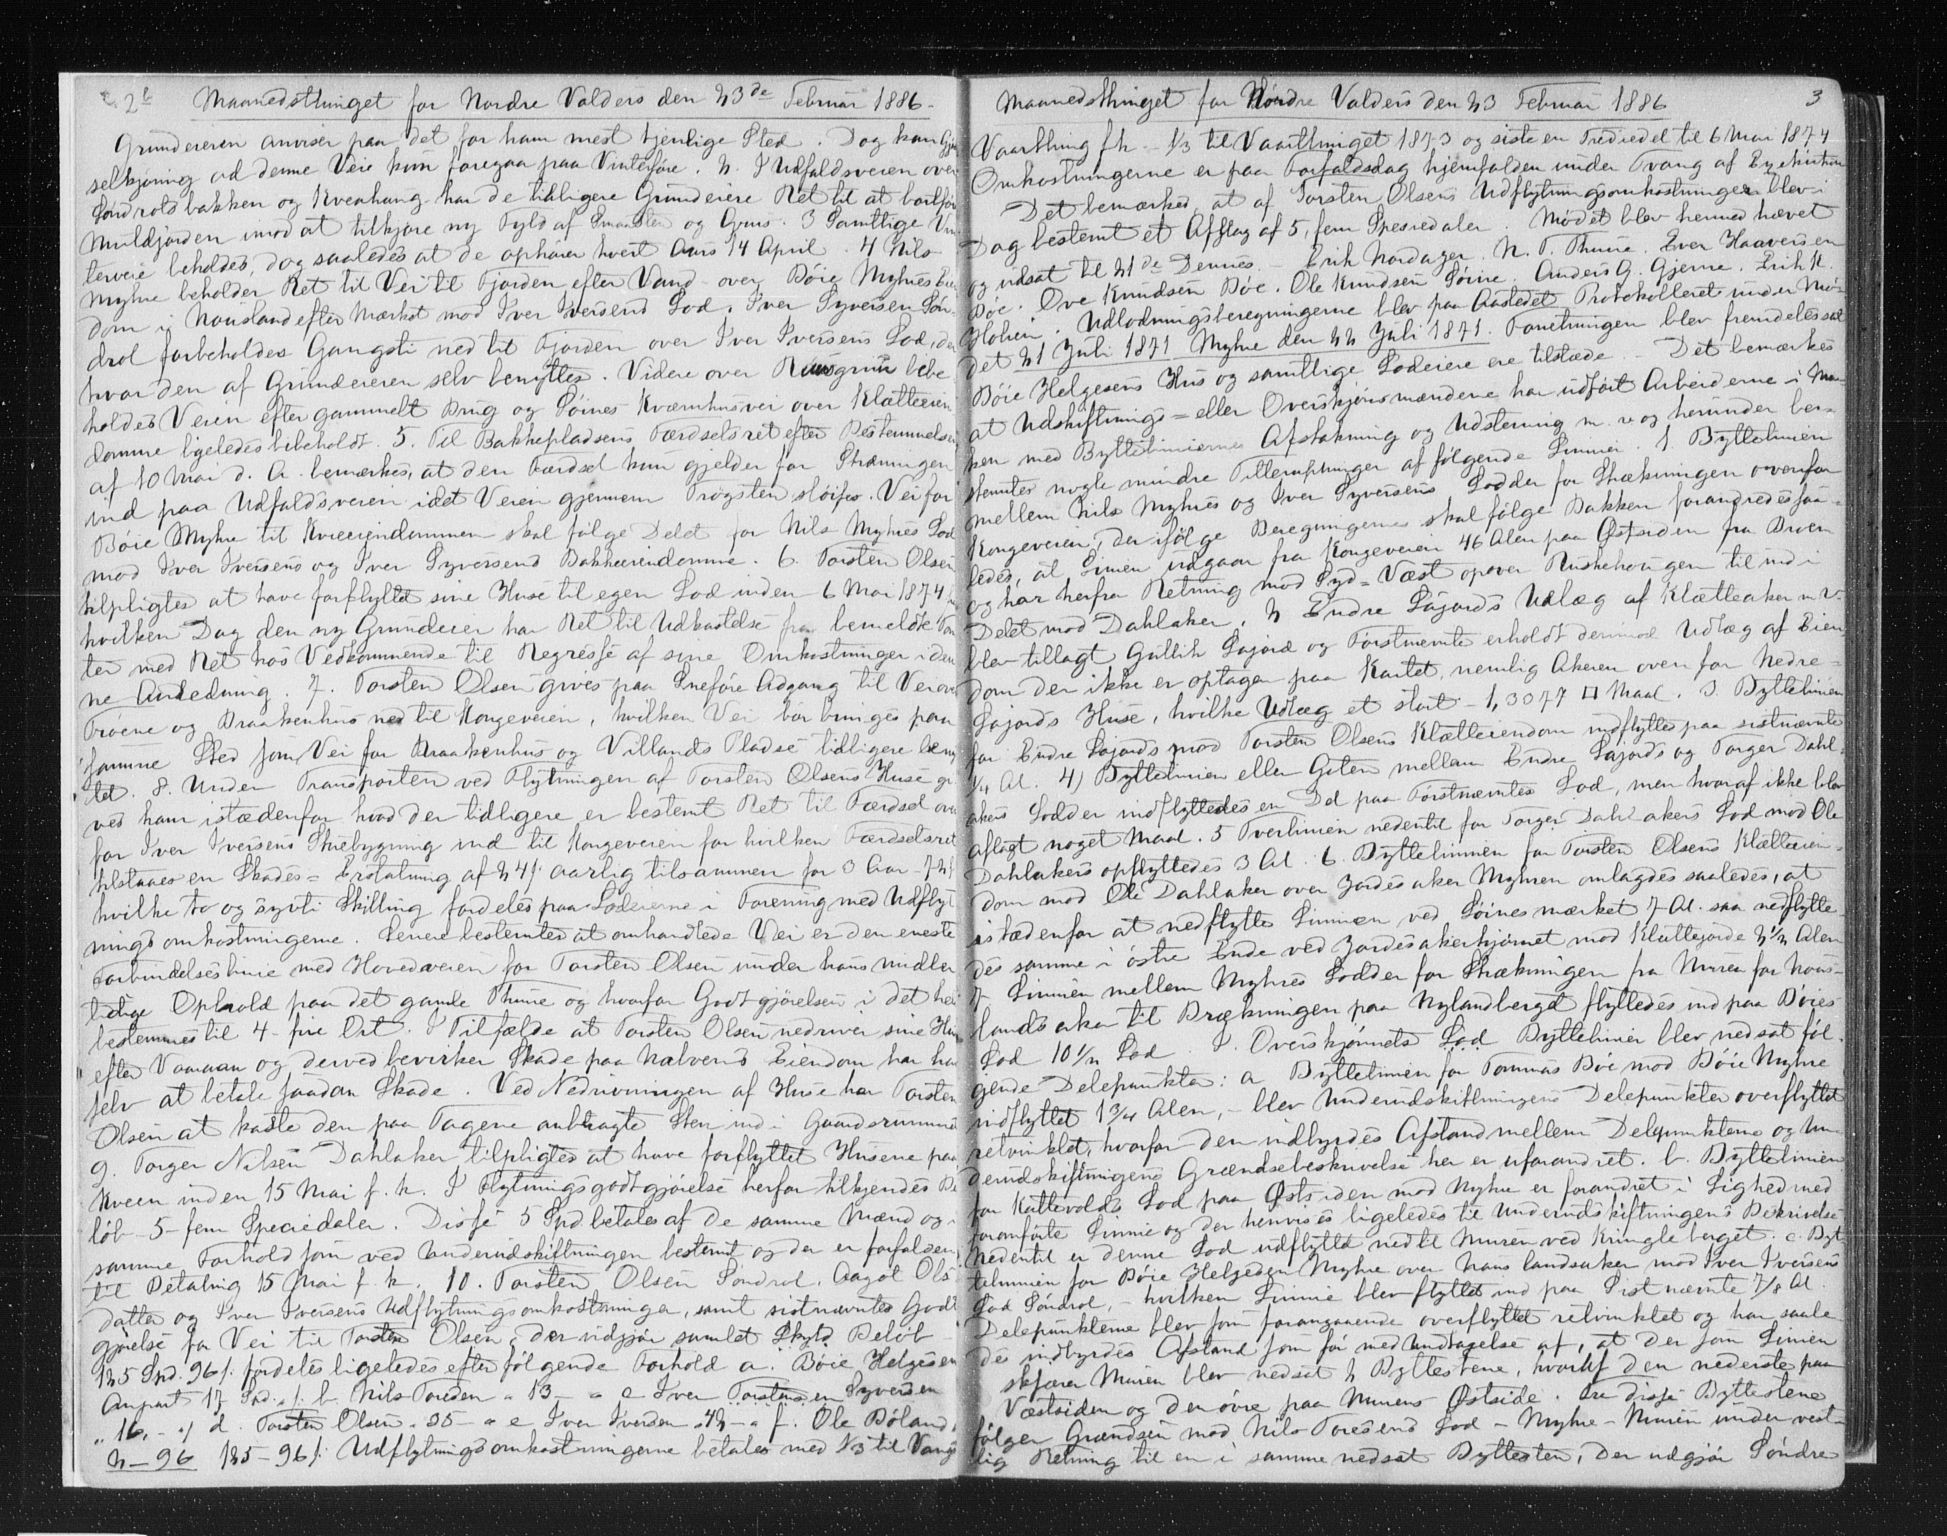 2b
Maanedsthinget for Nordre Valders den 23de Februar 1886 -
Grundeieren anviser paa det for ham mest tjenlige Sted. Dog kan Gjød
selkjøring ad denne Vei kun foregaa paa Vinterføre. 2. I Udfaldsveien over
Søndrolsbakken og Kvenhang har de tidligere Grundeiere Ret til at bortføre
Muldjorden imod at tilkjøre ny Fyld af Smaasten og Grus. 3 Samtlige Vin
terveie beholdes, dog saaledes at de ophører hvert Aars 14 April. 4 Nils
Myhre beholder Ret til Vei til Fjorden efter Vand over Bøie Myhres Eien
dom i Nousland efter Mærket mod Iver Iversens Lod. Iver Syversen Søn
drol forbeholdes Gangsti ned til Fjorden over Iver Iversens Lod, der
hvor den af Grundeieren selv benyttes. Videre over bibe
holdes Veien efter gammelt Brug og Søines Kværnhusvei over Klætteeien
domme ligeledes bibeholdt. 5. Til Bakkepladsens Færdselsret efter Bestemmelsen
af 10 Mai d. A. bemærkes, at den Færdsel kun gjelder for Strækningen
ind paa Udfaldsveien idet Veien gjennem Trøgsten sløifes. Vei for
Bøie Myhre til Kveeiendommen skal følge Delet for Nils Myhres Lod
mod Iver Iversens og Iver Syversens Bakkeeiendomme. 6. Torsten Olsen
tilpligtes at have forflyttet sine Huse til egen Lod inden 6 Mai 1874
hvilken Dag den ny Grundeier har Ret til Udkastelse fra bemeldte Tors
ten med Ret hos Vedkommende til Regresse af sine Omkostninger i den
ne Anledning. 7. Torsten Olsen gives paa Sneføre Adgang til Vei over
Trøene og Braakenhus ned til Kongeveien, hvilken Vei bør bringes paa
samme Sted som Vei for Braakenhus og Villands Pladse tidligere beny
tet. 8. Under Transporten ved Flytningen af Torsten Olsens Huse gi
ves ham istædenfor hvad der tidligere er bestemt Ret til Færdsel oven
for Iver Iversens Stuebygning ind til Kongeveien for hvilken Færdselsret
tilstaaes en Skades-Erstatning af 24 s. aarlig tilsammen for 3 Aar - 72 s
hvilke to og sytti Skilling fordeles paa Lodeierne i Forening med Udflyt
ningsomkostningerne. Senere bestemtes at omhandlede Vei er den eneste
Forbindelseslinie med Hovedveien for Torsten Olsen under hans midler
tidige Ophold paa det gamle Thune og hvorfor Godtgjørelsen i det hele
bestemmes til 4 - fire Ort. I Tilfælde at Torsten Olsen nedriver sine Huse
efter Vaaraan og derved bevirker Skade paa Halvens Eiendom har han
selv at betale saadan Skade. Ved Nedrivningen af Huse har Torsten
Olsen at kaste den paa Tagene anbragte Sten ind i Gaardsrummet
9. Torger Nilsen Dahlaker tilpligtes at have forflyttet Husene paa
Kveen inden 15 Mai f. k. I Flytningsgodtgjørelse herfor tilkjendes Be
løb - 5 - fem Speciedaler. Disse 5 Spd betales af de samme Mænd og i
samme Forhold som ved Underudskiftningen bestemt og der er forfalden
til Betaling 15 Mai f. k. 10. Torsten Olsen Søndrol, Aagot Ols
datter og Iver Iversens Udflytningsomkostninger, samt sistnævntes Godt
gjørelse for Vei til Torsten Olsen, der udgjør samlet Skyld Beløb
125 Spd. 96 s. fordeles ligeledes efter følgende Forhold a. Bøie Helgesen
Anpart 17 Spd. s. b Nils Toresen " 13 - " c Iver Torstensen Syversen
" 16, - " d. Torsten Olsen " 35 - " e Iver Iversen " 42 - " f. Ole Bøland,
2 - 96 125 - 96 s. Udflytningsomkostningerne betales med 1/3 til Vaar
3
Maanedsthinget for Nordre Valders den 23 Februar 1886
Vaarthing fk - 1/3 til Vaarthinget 1873 og siste en Trediedel til 6 Mai 1874
Omkostningerne er paa Forfaldsdag hjemfalden under Tvang af Exekution
Det bemærkes, at af Torsten Olsens Udflytningsomkostninger blev i
Dag bestemt et Afslag af 5, fem Spesiedaler. Mødet blev hermed hævet
og udsat til 21de Dennes. - Erik Nordager. N. T. Thune. Iver Haaversen
Bøe. Ove Knudsen Bøe. Ole Knudsen Søine. Anders G. Gjerne. Erik K.
Hohein. Udlodningsberegningerne blev paa Aastedet Protokolleret under Mø
det 21 Juli 1871 Myhre den 22 Juli 1871. Forretningen blev fremdeles sat
Bøie Helgesens Hus og samtlige Lodeiere ere tilstæde. Det bemærkes
at Udskiftnings- eller Overskjønsmændene har udført Arbeiderne i Mar
ken med Byttelinierners Afstakning og Udstening m. v og herunder be
stemtes nogle mindre Tillempninger af følgende Linier. 1. Byttelinien
mellem Nils Myhres og Iver Syversens Lodder for Strækningen ovenfor
Kongeveien, der ifølge Beregningerne skal følge Bakken forandredes saa
ledes, at Linien udgaar fra Kongeveien 46 Alen paa Østsiden fra Broen
og har herfra Retning mod Syd-Væst opover Ruskehougen til ind i
Delet mod Dahlaker. 2 Endre Lajords Udlæg af Klætteaker m. v.
blev tillagt Gullik Lajord og Førstnævnte erholdt derimod Udlæg af Eien
dom der ikke er optagen paa Kartet, nemlig Akeren ovenfor Nedre-
Lajords Huse, hvilke Udlæg et stort - 1,3077 □ Maal. 3. Byttelinien
for Endre Lajords mod Torsten Olsens Klætteeiendom indflyttes paa sistnævnte
1/4 Al. 4) Byttelinien eller Geten mellem Endre Lajords og Torger Dahl
akers Lodder indflyttedes en Del paa Førstnævntes Lod, men hvoraf ikke blev
aflagt noget Maal. 5 Tverlinien nedentil for Torger Dahlakers Lod mod Ole
Dahlakers opflyttedes 3 Al. 6. Byttelinien for Torsten Olsens Klætteeien
dom mod Ole Dahlaker over Jordesaker Myhren omlagdes saaledes, at
istædenfor at nedflytte Linien ved Søines mærket 7 Al. saa nedflytte
des samme i østre Ende ved Jordesakerhjørnet mod Klættejorde 2 1/2 Alen
7 Linien mellem Myhres Lodder for Strækningen fra Muren for Nous-
landsaker til Brækningen paa Nylandberget flyttedes ind paa Bøies
Lod 10 1/2 Lod. I. Overskjønnets Lod Byttelinier blev nedsat føl
gende Delepunkta: a Byttelinien for Tommas Bøe mod Bøie Myhre
indflyttet 1 3/4 Alen, - blev Underudskiftningens Delepunkter overflyttet
retvinklet, hvorfor den indbyrdes Afstand mellem Delepunkterne og Un
derudskiftningens Grændsebeskrivelse her er uforandret. b. Byttelinien
for Kattevolds Lod paa Østsiden mod Myhre er forandret i Lighed med
foranførte Linie og der henvises ligeledes til Underudskiftningens Beskrivelse
Nedentil er denne Lod udflyttet ned til Muren ved Kringleberget. c. Byt
telinien for Bøie Helgesen Myhre over Nouslandsaker mod Iver Iversens
Lod Søndrol, - hvilken Linie blev flyttet ind paa Sistnævnte 7/8 Al.
Delepunkterne blev som forangaaende overflyttet retvinklet og har saale
des indbyrdes Afstand som før med Undtagelse af, at der som Linien
skjærer Muren blev nedsat 2 Byttestene, hvoraf den nederste paa
Væstsiden og den øvre paa Murens Østside. Fra disse Byttestene
følger Grændsen mod Nils Toresens Lod - Myhre - Muren under vest-
lig Retning til en i samme nedsat Byttesten, der udgjør Søndre